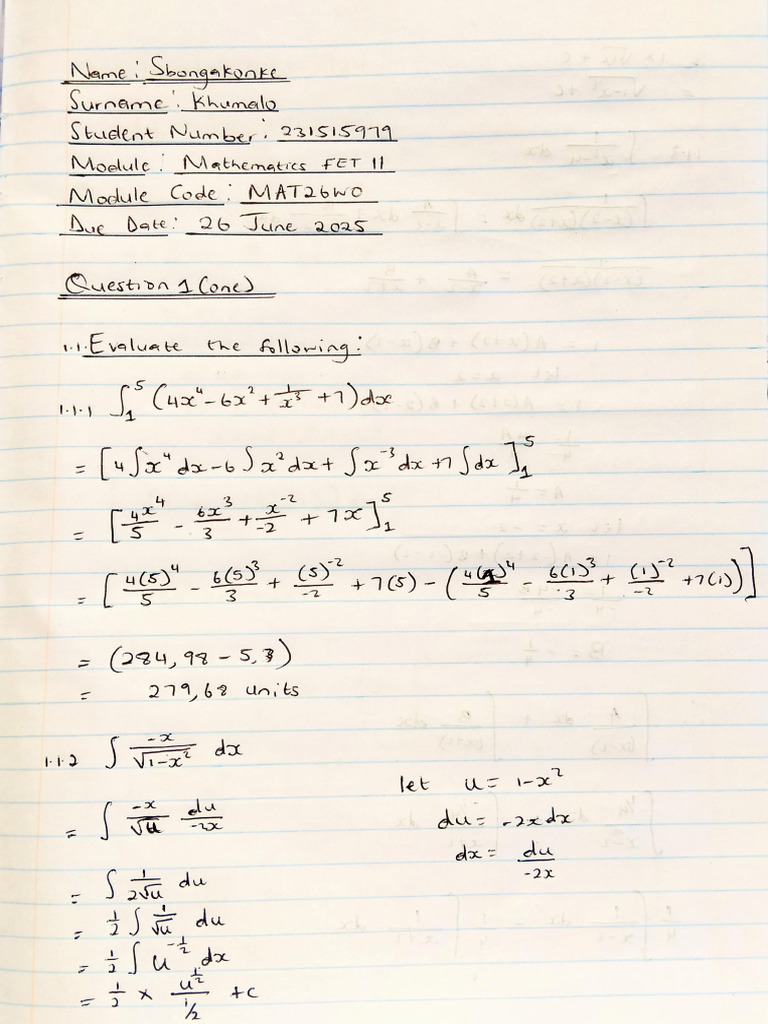 Name: Sbongakonke
Surname: Khumalo
Student Number: 231515979
Module: Mathematics FET II
Module Code: MAT26WO
Due Date: 26 June 2025
Question 1 (one)
1.1. Evaluate the following:
1.1.1 ∫₁⁵ (4x⁴ - 6x² + 1/x³ + 7) dx
= [4∫x⁴ dx - 6∫x² dx + ∫x⁻³ dx + 7∫dx]₁⁵
= [4x⁴/5 - 6x³/3 + x⁻²/-2 + 7x]₁⁵
= [4(5)⁴/5 - 6(5)³/3 + (5)⁻²/-2 + 7(5) - (4(1)⁴/5 - 6(1)³/3 + (1)⁻²/-2 + 7(1))]
= (284,98 - 5,3)
= 279,68 units
1.1.2 ∫ -x/√(1-x²) dx
let u = 1-x²
du = -2x dx
dx = du/-2x
= ∫ -x/√u du/-2x
= ∫ 1/2√u du
= 1/2 ∫ 1/√u du
= 1/2 ∫ u^(-1/2) dx
= 1/2 × u^(1/2)/1/2 + c